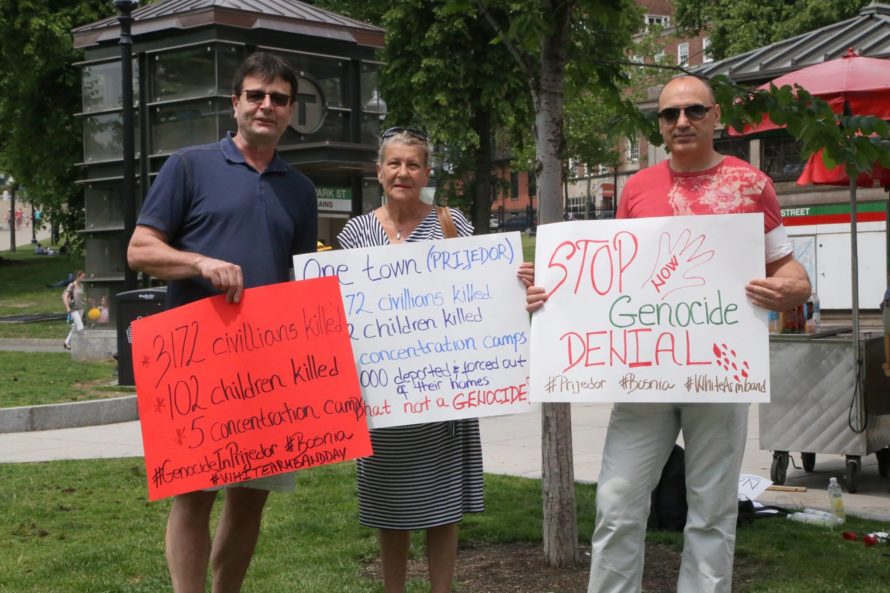 T
ARK ST
AINS
STREET
*3172 civillians killed
*102 children killed
*5 concentration camps
#GenocideInPrijedor #Bosnia
#WHITEARMBANDDAY
One town (PRIJEDOR)
72 civilians killed
2 children killed
concentration camps
000 deported & forced out
of their homes
hat not a GENOCIDE?
STOP NOW
Genocide
DENIAL
#Prijedor #Bosnia #WhiteArmband